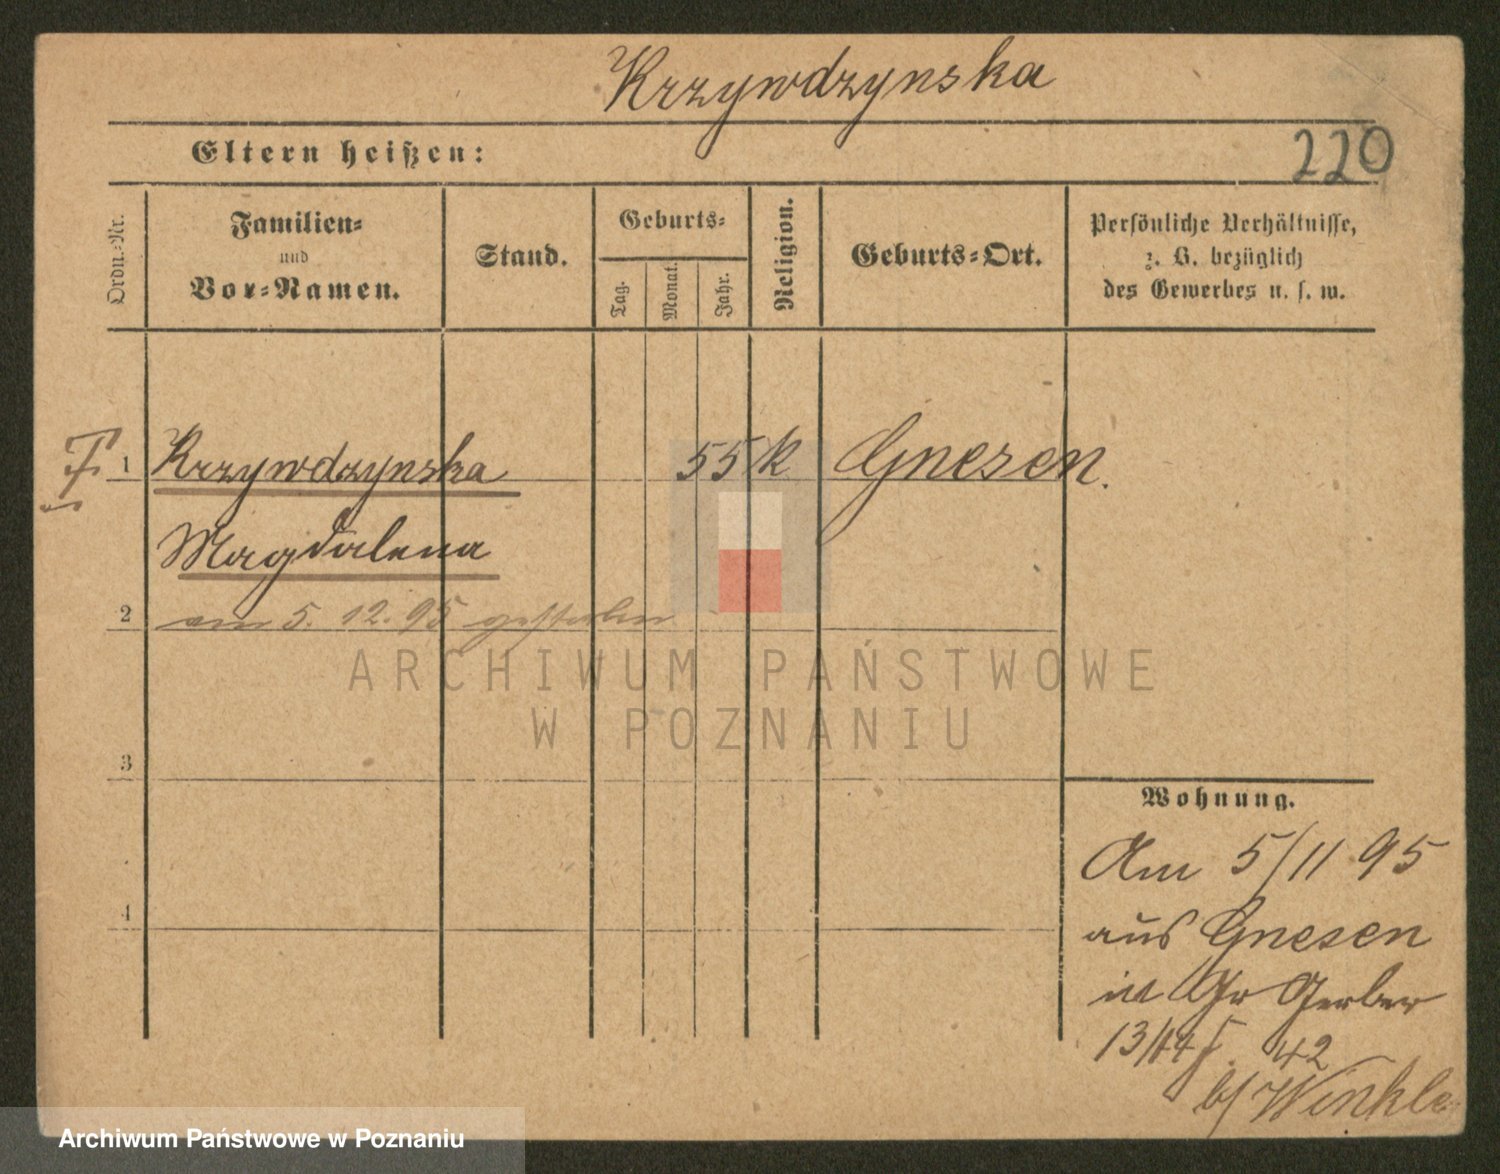 Krzywdzynska
Eltern heißen:
220
Ordn.-Nr.
Familien-
und
Vor-Namen.
Stand.
Geburts-
Tag.
Monat.
Jahr.
Religion.
Geburts-Ort.
Persönliche Verhältnisse,
z. B. bezüglich
des Gewerbes u. s. w.
1 Krzywdzynska 55 k Gnesen.
Magdalena
2 am 5. 12. 95 gestorben
ARCHIWUM PAŃSTWOWE
W POZNANIU
3
Wohnung.
Am 5/11 95
4
aus Gnesen
in Gr Gerber
13/14 42
b/ Winkle
Archiwum Państwowe w Poznaniu